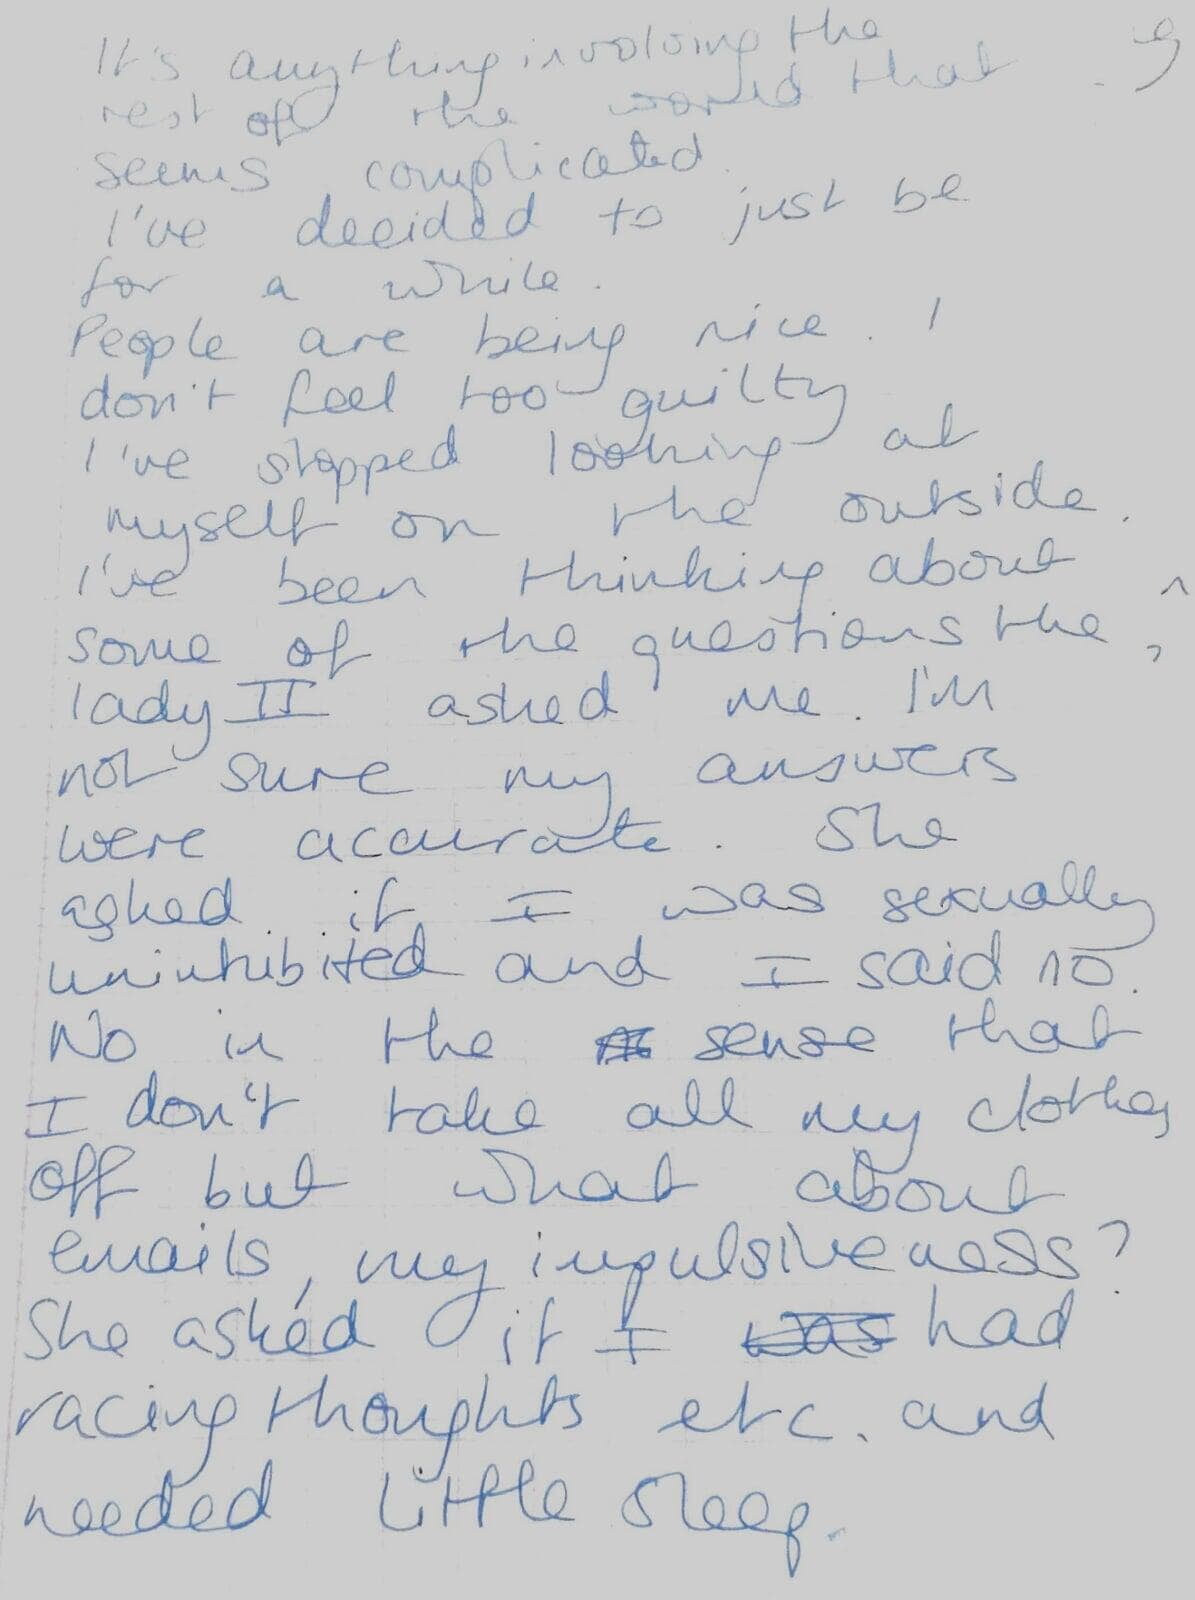 It's anything involving the
rest of the world that
seems complicated.
I've decided to just be
for a while.
People are being nice. I
don't feel too guilty
I've stopped looking at
myself on the outside.
I've been thinking about
some of the questions the
lady II asked me. I'm
not sure my answers
were accurate. She
asked if I was sexually
uninhibited and I said no.
No in the sense that
I don't take all my clothes
off but what about
emails, my impulsiveness?
She asked if I was had
racing thoughts etc. and
needed little sleep.